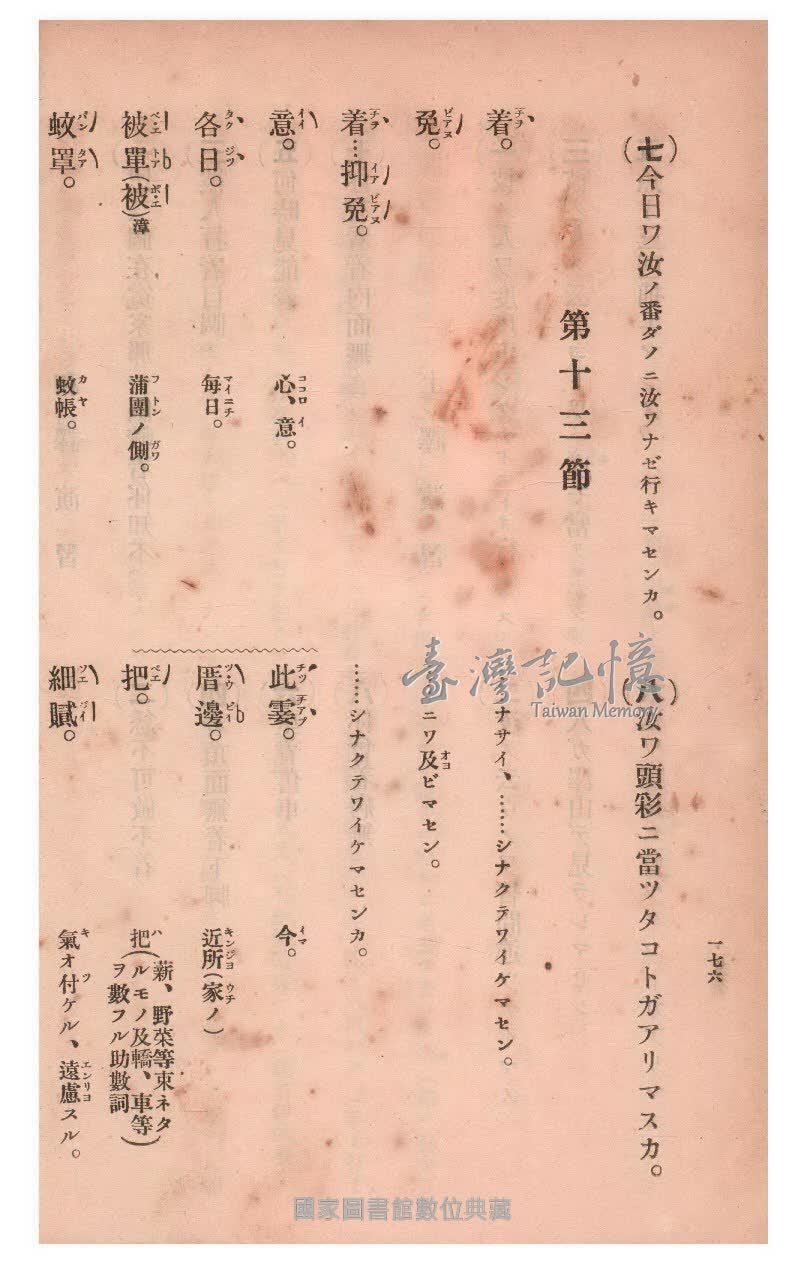 一七六
(七)今日ワ汝ノ番ダノニ汝ワナゼ行キマセンカ。
(八)汝ワ頭彩ニ當ツタコトガアリマスカ。
第十三節
着。
ナサイ、……シナクテワイケマセン。
免。
ニワ及ビマセン。
着…抑免。
……シナクテワイケマセンカ。
意。
心、意。
此霎。
今。
各日。
每日。
厝邊。
近所(家ノ)
被單(被)漳
蒲團ノ側。
把。
把(薪、野菜等束ネタルモノ及轎、車等ヲ數フル助數詞)
蚊罩。
蚊帳。
細膩。
氣オ付ケル、遠慮スル。
臺灣記憶
Taiwan Memory
國家圖書館數位典藏